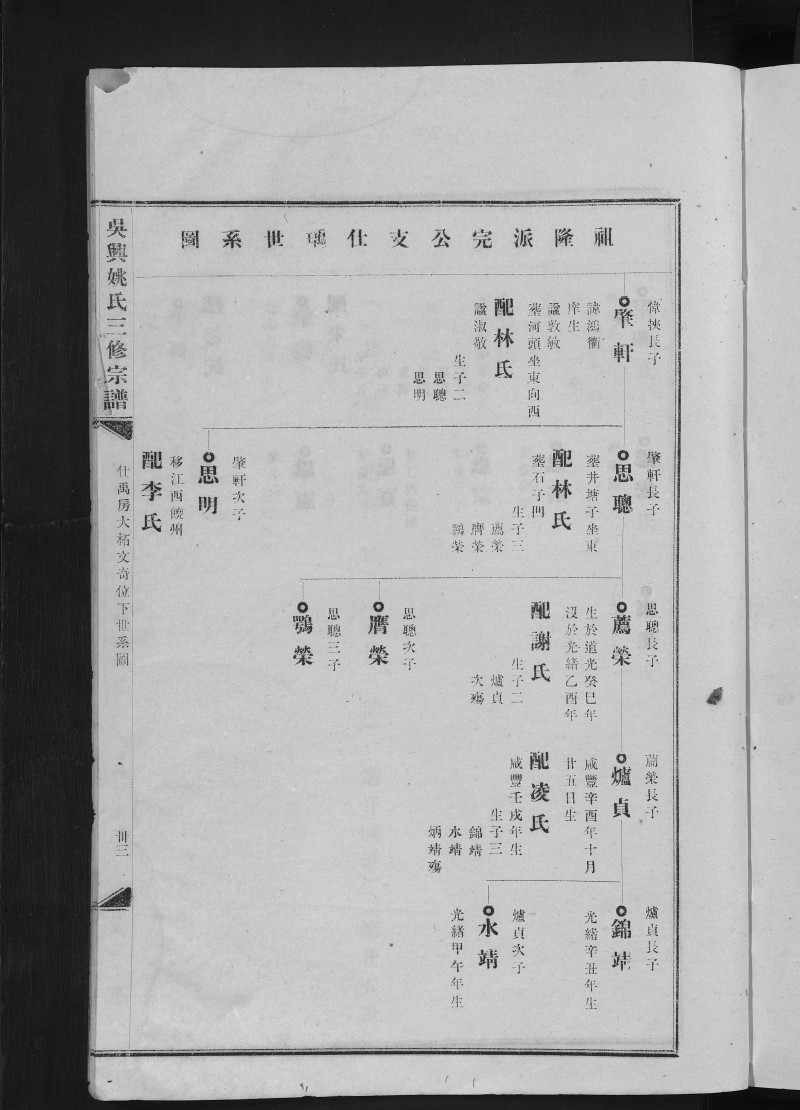 祖隆派完公支仕璕世系圖
偉挾長子
肇軒
諱鴻衢
庠生
諡敦敏
塟河頭坐東向西
配林氏
諡淑敬
生子二
思聰
思明
肇軒長子
思聰
塟井塘子坐東
配林氏
塟石子凹
生子三
薦榮
膺榮
鶚榮
肇軒次子
思明
移江西饒州
配李氏
思聰長子
薦榮
生於道光癸巳年
沒於光緒乙酉年
配謝氏
生子二
爐貞
次殤
思聰次子
膺榮
思聰三子
鶚榮
薦榮長子
爐貞
咸豐辛酉年十月
廿五日生
配凌氏
咸豐壬戌年生
生子三
錦靖
永靖
炳靖殤
爐貞長子
錦靖
光緒辛丑年生
爐貞次子
永靖
光緒甲午年生
吳興姚氏三修宗譜
仕禹房大柘文奇位下世系圖
卅三